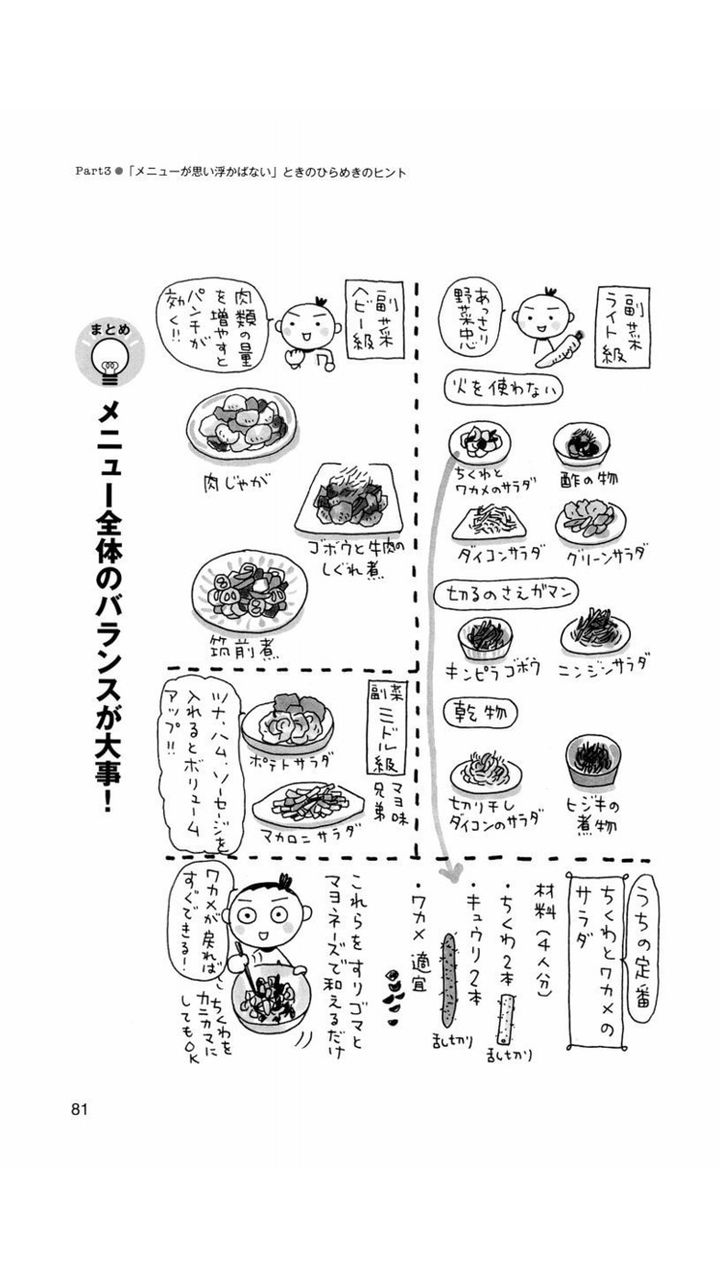 Part3●「メニューが思い浮かばない」ときのひらめきのヒント
副菜
ライト級
あっさり
野菜中心
火を使わない
ちくわと
ワカメのサラダ
酢の物
ダイコンサラダ
グリーンサラダ
切るのさえガマン
キンピラゴボウ
ニンジンサラダ
乾物
切り干し
ダイコンのサラダ
ヒジキの
煮物
副菜
ヘビー級
肉類の量
を増やすと
パンチが
効く!!
肉じゃが
ゴボウと牛肉の
しぐれ煮
筑前煮
副菜
ミドル級
マヨ味
兄弟
ポテトサラダ
マカロニサラダ
ツナ、ハム、ソーセージを
入れるとボリューム
アップ!!
うちの定番
ちくわとワカメの
サラダ
材料(4人分)
・ちくわ2本
乱切り
・キュウリ2本
乱切り
・ワカメ 適宜
これらをすりゴマと
マヨネーズで和えるだけ
ワカメが戻れば
すぐできる!
ちくわを
カニカマに
してもOK
まとめ
メニュー全体のバランスが大事!
81